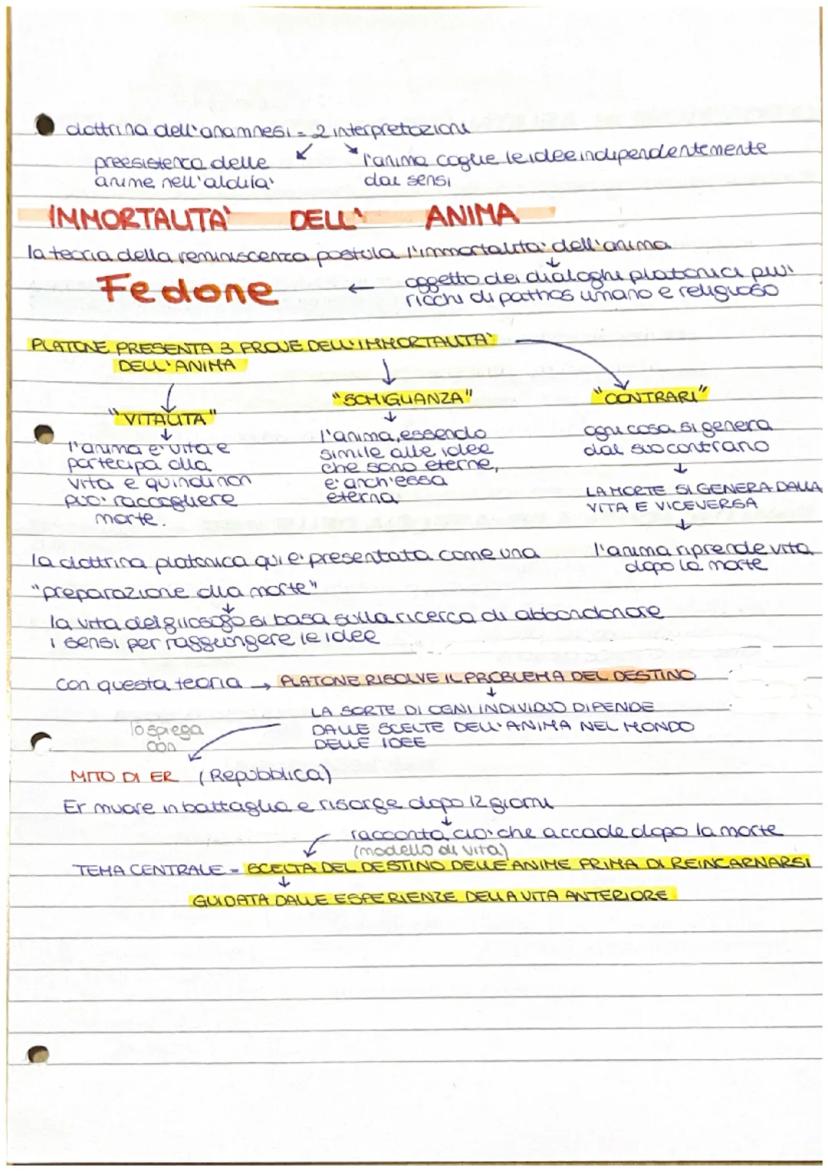 dottrina dell'anamnesi = 2 interpretazioni
preesistenza delle
anime nell'aldilà
l'anima coglie le idee indipendentemente
dai sensi
IMMORTALITA' DELL' ANIMA
la teoria della reminiscenza postula l'immortalità dell'anima
Fedone ← oggetto dei dialoghi platonici più
ricchi di pathos umano e religioso
PLATONE PRESENTA 3 PROVE DELL'IMMORTALITÀ
DELL'ANIMA
"VITALITA"
l'anima è vita e
partecipa alla
vita e quindi non
può raccogliere
morte.
"SOMIGLIANZA"
l'anima, essendo
simile alle idee
che sono eterne,
è anch'essa
eterna
"CONTRARI"
ogni cosa si genera
dal suo contrario
↓
LA MORTE SI GENERA DALLA
VITA E VICEVERSA
↓
l'anima riprende vita
dopo la morte
la dottrina platonica qui è presentata come una
"preparazione alla morte"
la vita del filosofo si basa sulla ricerca di abbandonare
i sensi per raggiungere le idee
con questa teoria → PLATONE RISOLVE IL PROBLEMA DEL DESTINO
LA SORTE DI OGNI INDIVIDUO DIPENDE
DALLE SCELTE DELL'ANIMA NEL MONDO
DELLE IDEE
lo spiega
con
MITO DI ER (Repubblica)
Er muore in battaglia e risorge dopo 12 giorni
racconta ciò che accade dopo la morte
(modello di vita)
TEMA CENTRALE = SCELTA DEL DESTINO DELLE ANIME PRIMA DI REINCARNARSI
GUIDATA DALLE ESPERIENZE DELLA VITA ANTERIORE